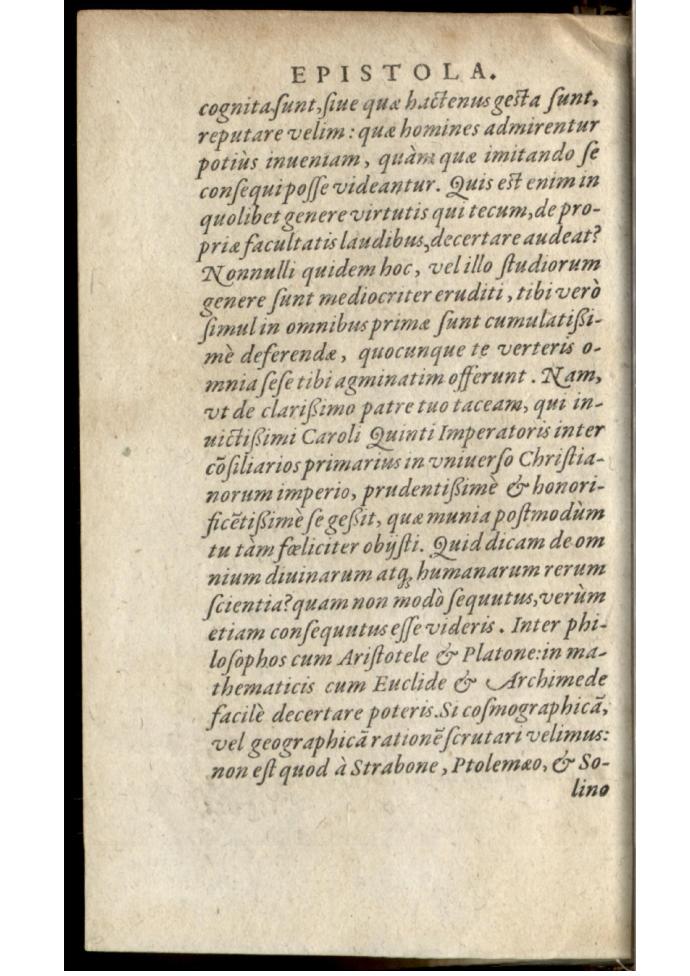 EPISTOLA.
cognita ſunt, ſiue quæ hactenus geſta ſunt,
reputare velim: quæ homines admirentur
potiùs inueniam, quàm quæ imitando ſe
conſequi poſſe videantur. Quis eſt enim in
quolibet genere virtutis qui tecum, de pro-
priæ facultatis laudibus, decertare audeat?
Nonnulli quidem hoc, vel illo ſtudiorum
genere ſunt mediocriter eruditi, tibi verò
ſimul in omnibus primæ ſunt cumulatißi-
mè deferendæ, quocunque te verteris o-
mnia ſeſe tibi agminatim offerunt. Nam,
vt de clarißimo patre tuo taceam, qui in-
uictißimi Caroli Quinti Imperatoris inter
cõſiliarios primarius in vniuerſo Chriſtia-
norum imperio, prudentißimè & honori-
ficẽtißimè ſe geßit, quæ munia poſtmodùm
tu tàm fœliciter obijſti. Quid dicam de om
nium diuinarum atq; humanarum rerum
ſcientia? quam non modò ſequutus, verùm
etiam conſequutus eſſe videris. Inter phi-
loſophos cum Ariſtotele & Platone: in ma-
thematicis cum Euclide & Archimede
facilè decertare poteris. Si coſmographicã,
vel geographicã rationẽ ſcrutari velimus:
non eſt quod à Strabone, Ptolemæo, & So-
lino